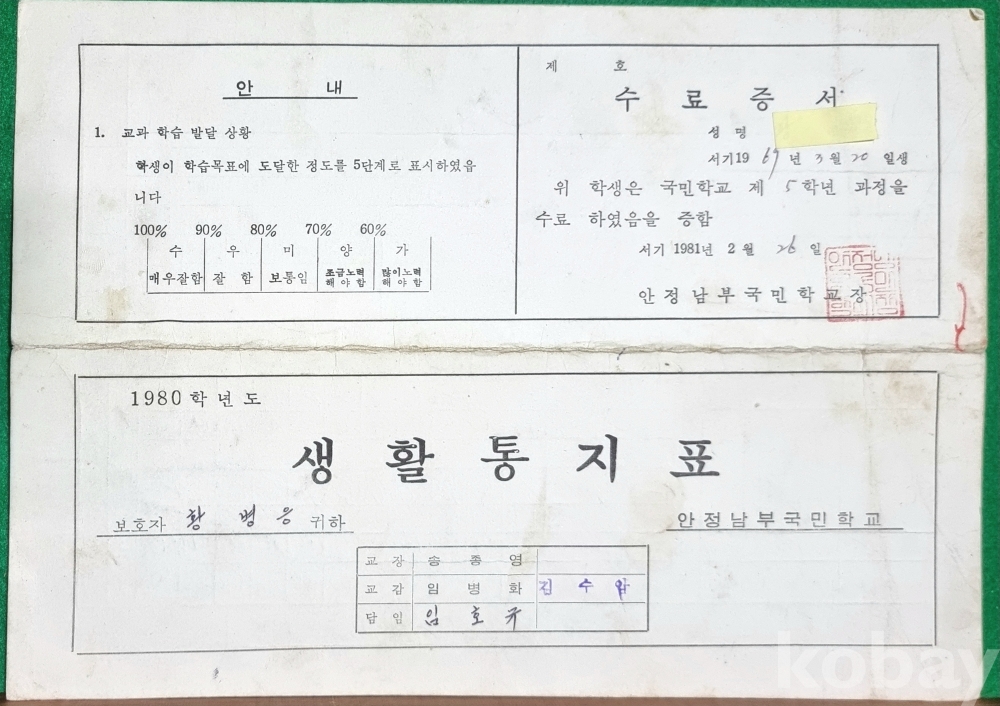 안 내
1. 교과 학습 발달 상황
학생이 학습목표에 도달한 정도를 5단계로 표시하였읍
니다
100% 90% 80% 70% 60%
수 우 미 양 가
매우잘함 잘 함 보통임 조금노력 해야 함 많이노력 해야 함
제 호
수 료 증 서
성 명
서기19 69년 3월 20 일생
위 학생은 국민학교 제 5학년 과정을
수료 하였음을 증함
서기 1981년 2월 26일
안정남부국민학교장
1980학년도
생 활 통 지 표
보호자 황 병 응 귀하
안정남부국민학교
교 장 송 종 영
교 감 임 병 화 김 수 암
담 임 임 호 규
kobay